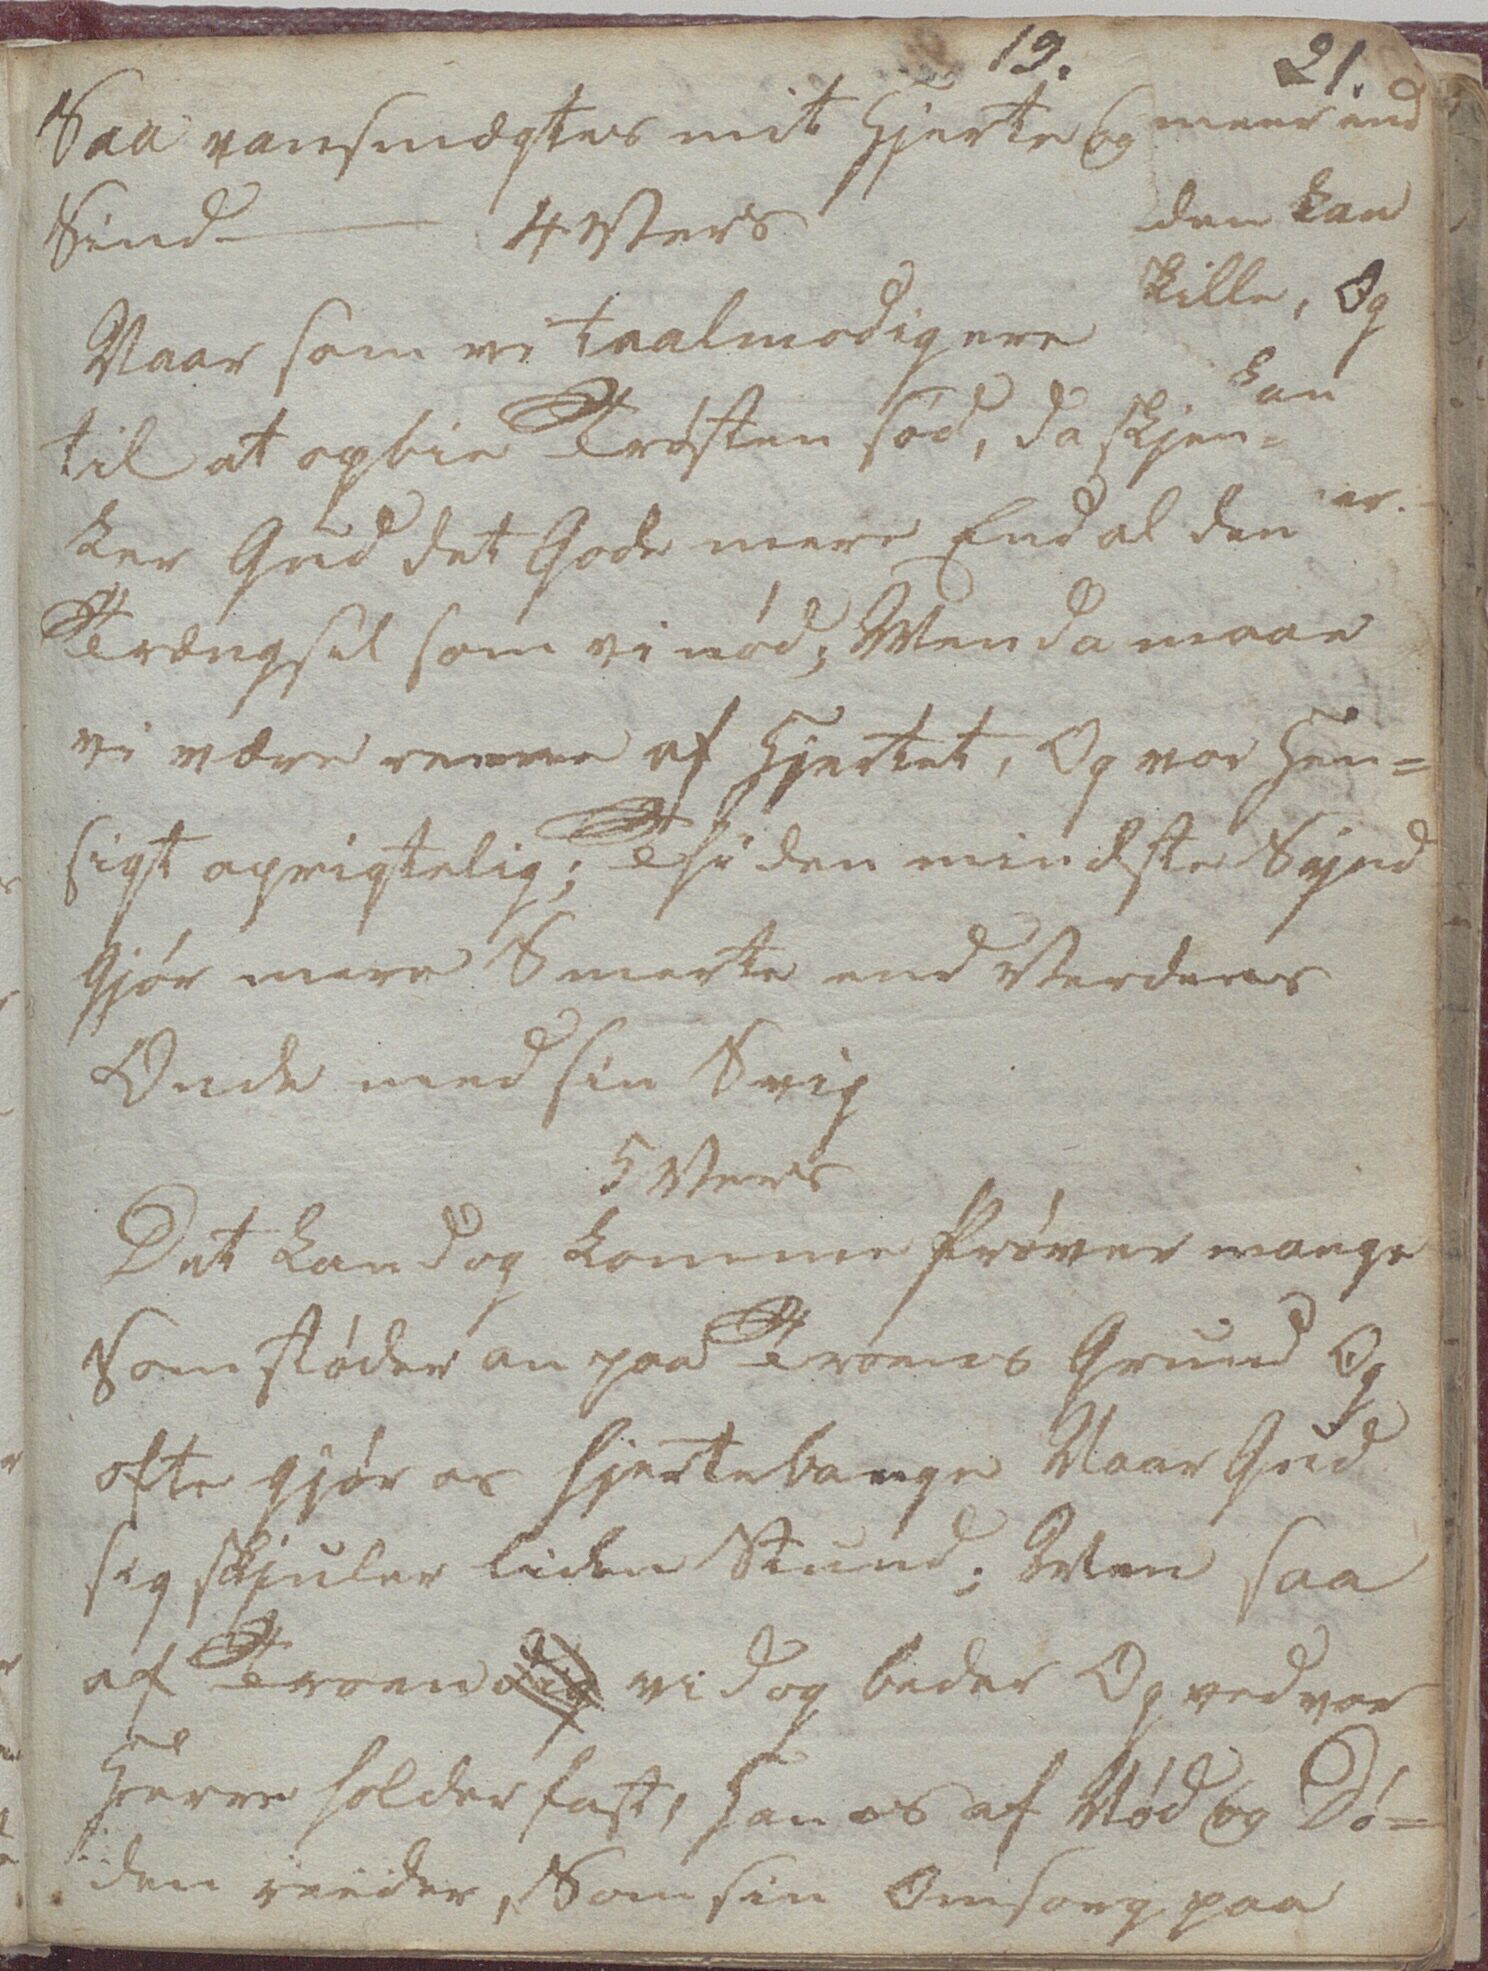 19. 21.
Saa vansmægtes mit Hjerte og
Sind 4 Vers
Naar som vi taalmodigere
til at opbie Trøsten sød, da skjen=
ker Gud det Gode mere End al den
Trængsel som vi nød; Men da maae
vi være reene af Hjertet, Og vor Hen=
sigt oprigtelig; Thi den mindste Synd
Gjør mere Smerte end Verdens
Onde med sin Svig
5 Vers
Det kand og komme Prøver mange
Som støder an paa Troens Grund Og
ofte gjør os hjertebange Naar Gud
sig skjuler liden Stund; Men saa
af Troen vi dog beder Og ved vor
Herre holder fast, Han os af Nød og Dø=
den reeder, Som sin Omsorg paa
meer end
den kan
skille, Og
kan
er.